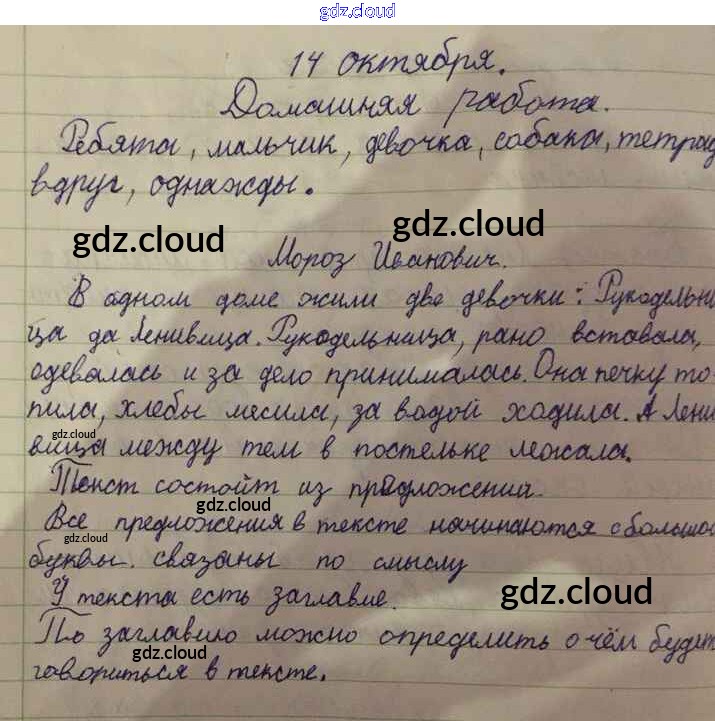 gdz.cloud
14 октября.
Домашняя работа.
Ребята, мальчик, девочка, собака, тетрад
вдруг, однажды.
gdz.cloud
gdz.cloud
Мороз Иванович.
В одном доме жили две девочки: Рукодельни
ца да Ленивица. Рукодельница, рано вставала,
одевалась и за дело принималась. Она печку то-
пила, хлебы месила, за водой ходила. А Лени
gdz.cloud
вица между тем в постельке лежала.
Текст состойт из предложения.
gdz.cloud
Все предложения в тексте начинаются с большой
gdz.cloud
буквы. связаны по смыслу
У текста есть заглавие.
gdz.cloud
По заглавию можно определить о чём будет
gdz.cloud
говориться в тексте.